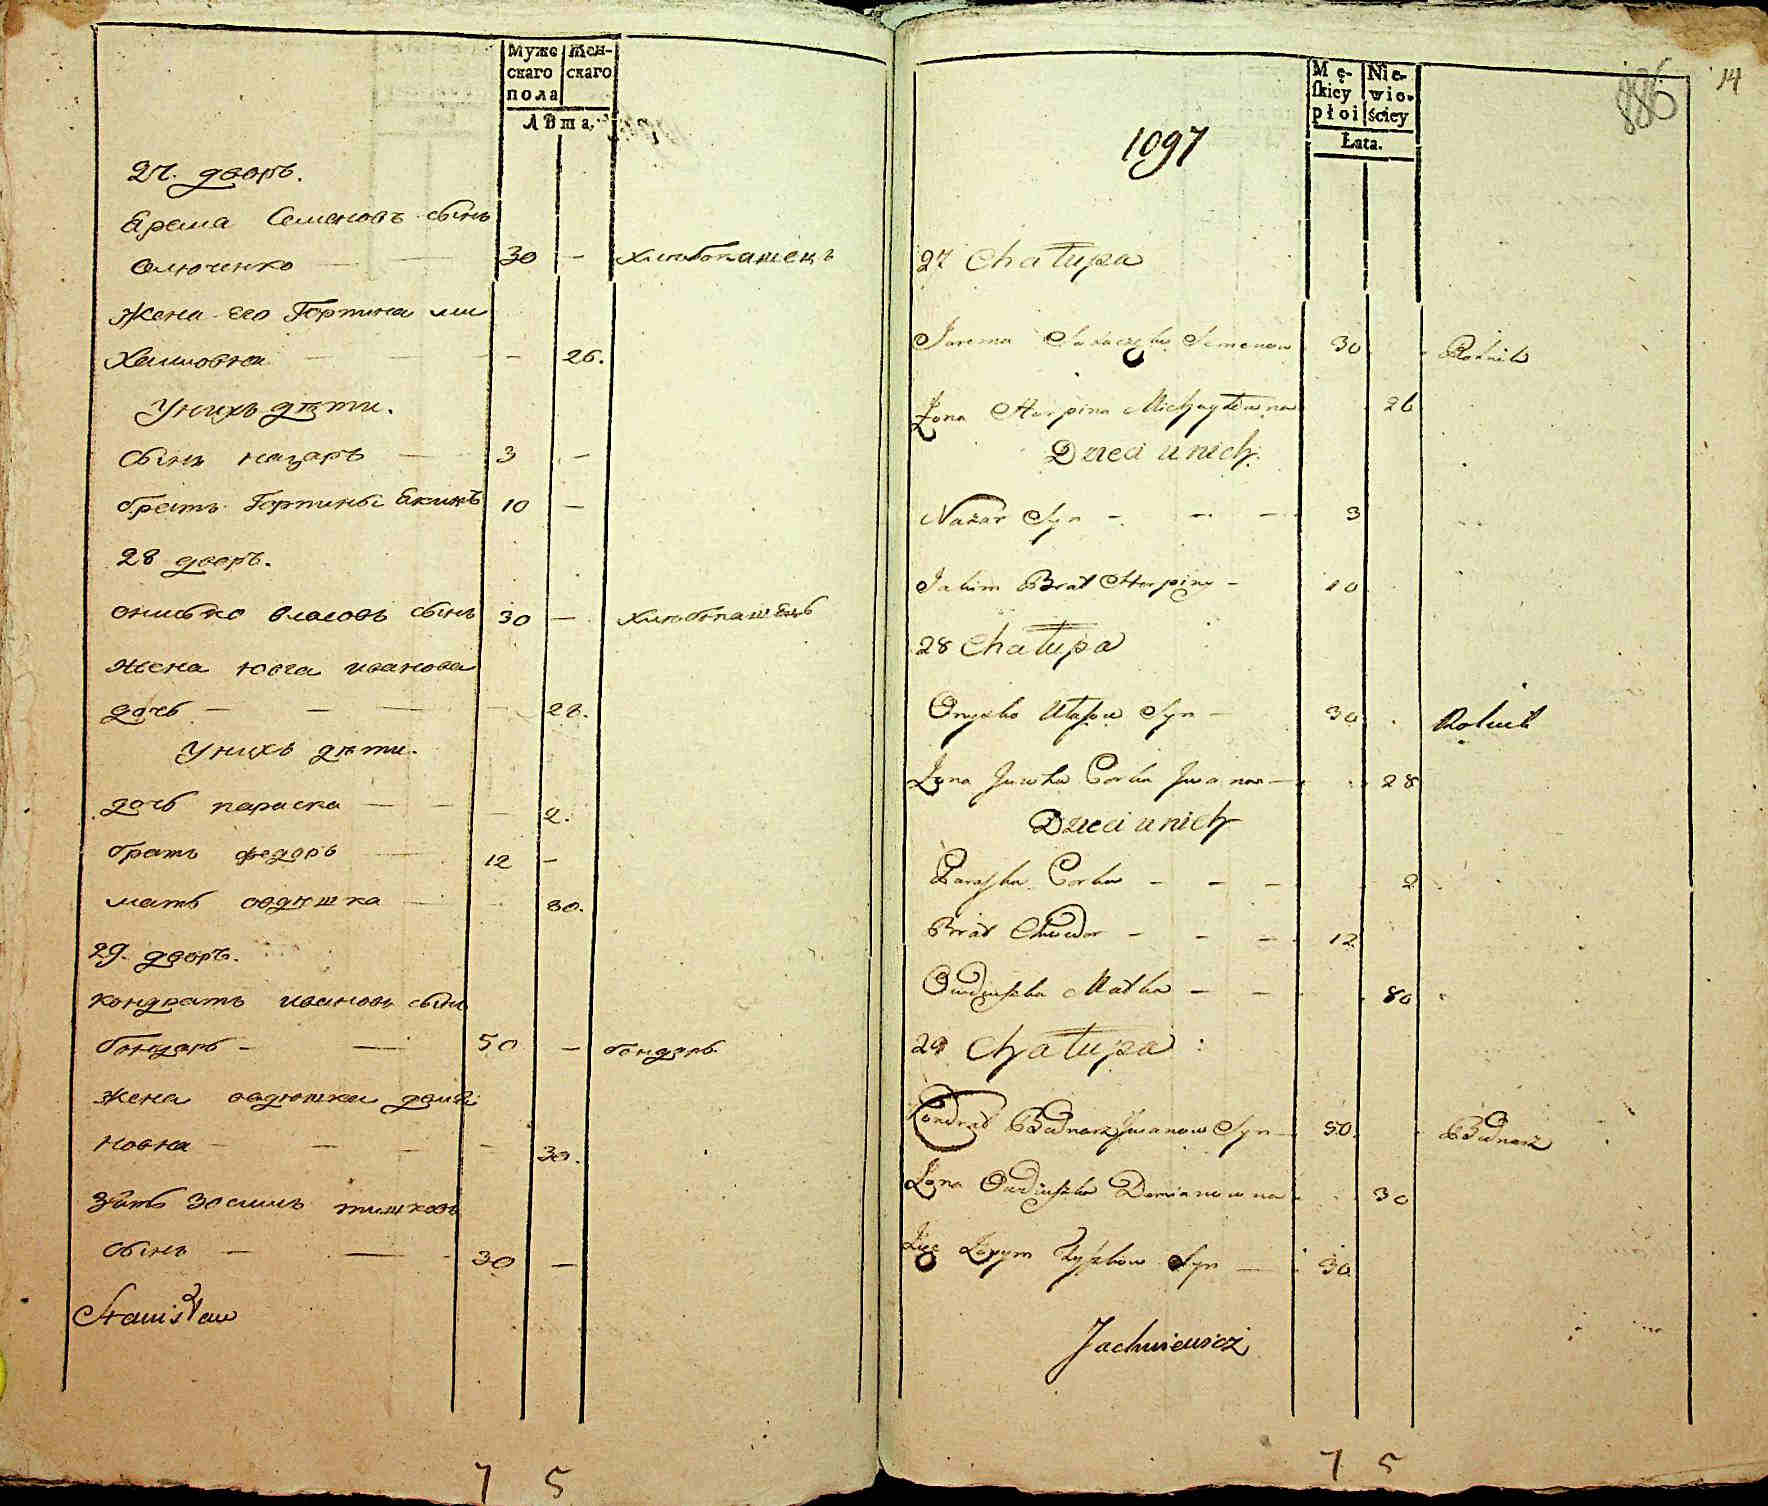 Муже
скаго
пола
жен-
скаго
лѣта,
27. дворъ.
Ерема Семеновъ сынъ
30 — хлѣбопашецъ
жена его Горпина ми
хайловна — — 26.
У нихъ дѣти.
сынъ назаръ — 3 —
братъ Горпины Екимъ 10 —
28 дворъ.
онисько власовъ сынъ 30 — хлѣбопашецъ
жена ювга иванова
дочь — — — 28.
У нихъ дѣти.
дочь параска — — — 2.
братъ федоръ — 12 —
мать овдюшка — 80.
29. дворъ.
кондратъ ивановъ сынъ
бондарь — — 50 — бондарь
жена овдюшка демья
новна — — — 30.
зять зосимъ тишковъ
сынъ — — 30 —
Stanisław
7 5
886 14
1097
Mę-
ſkiey
płoi
Nie-
wie-
ściey
Łata.
27 Chałupa
Jarema Semenow 30 Rolnik
Żona Horpina Michayłowna 26
Dzieci u nich
Nazar Syn — — — 3
Jakim Brat Horpiny — 10
28 Chałupa
Onyszko Ułasow Syn — 30 Rolnik
Żona Juwha Corka Jwanow — 28
Dzieci u nich
Paraſka Corka — — — 2
Brat Chwedor — — — 12
Owdiuszka Matka — — 80
29 Chałupa :
Kondrat Bednarz Jwanow Syn — 50 Bednarz
Żona Owdiuszka Demianowna 30
Zięć Zosym Tyszkow Syn — 30
Jachniewicz
7 5